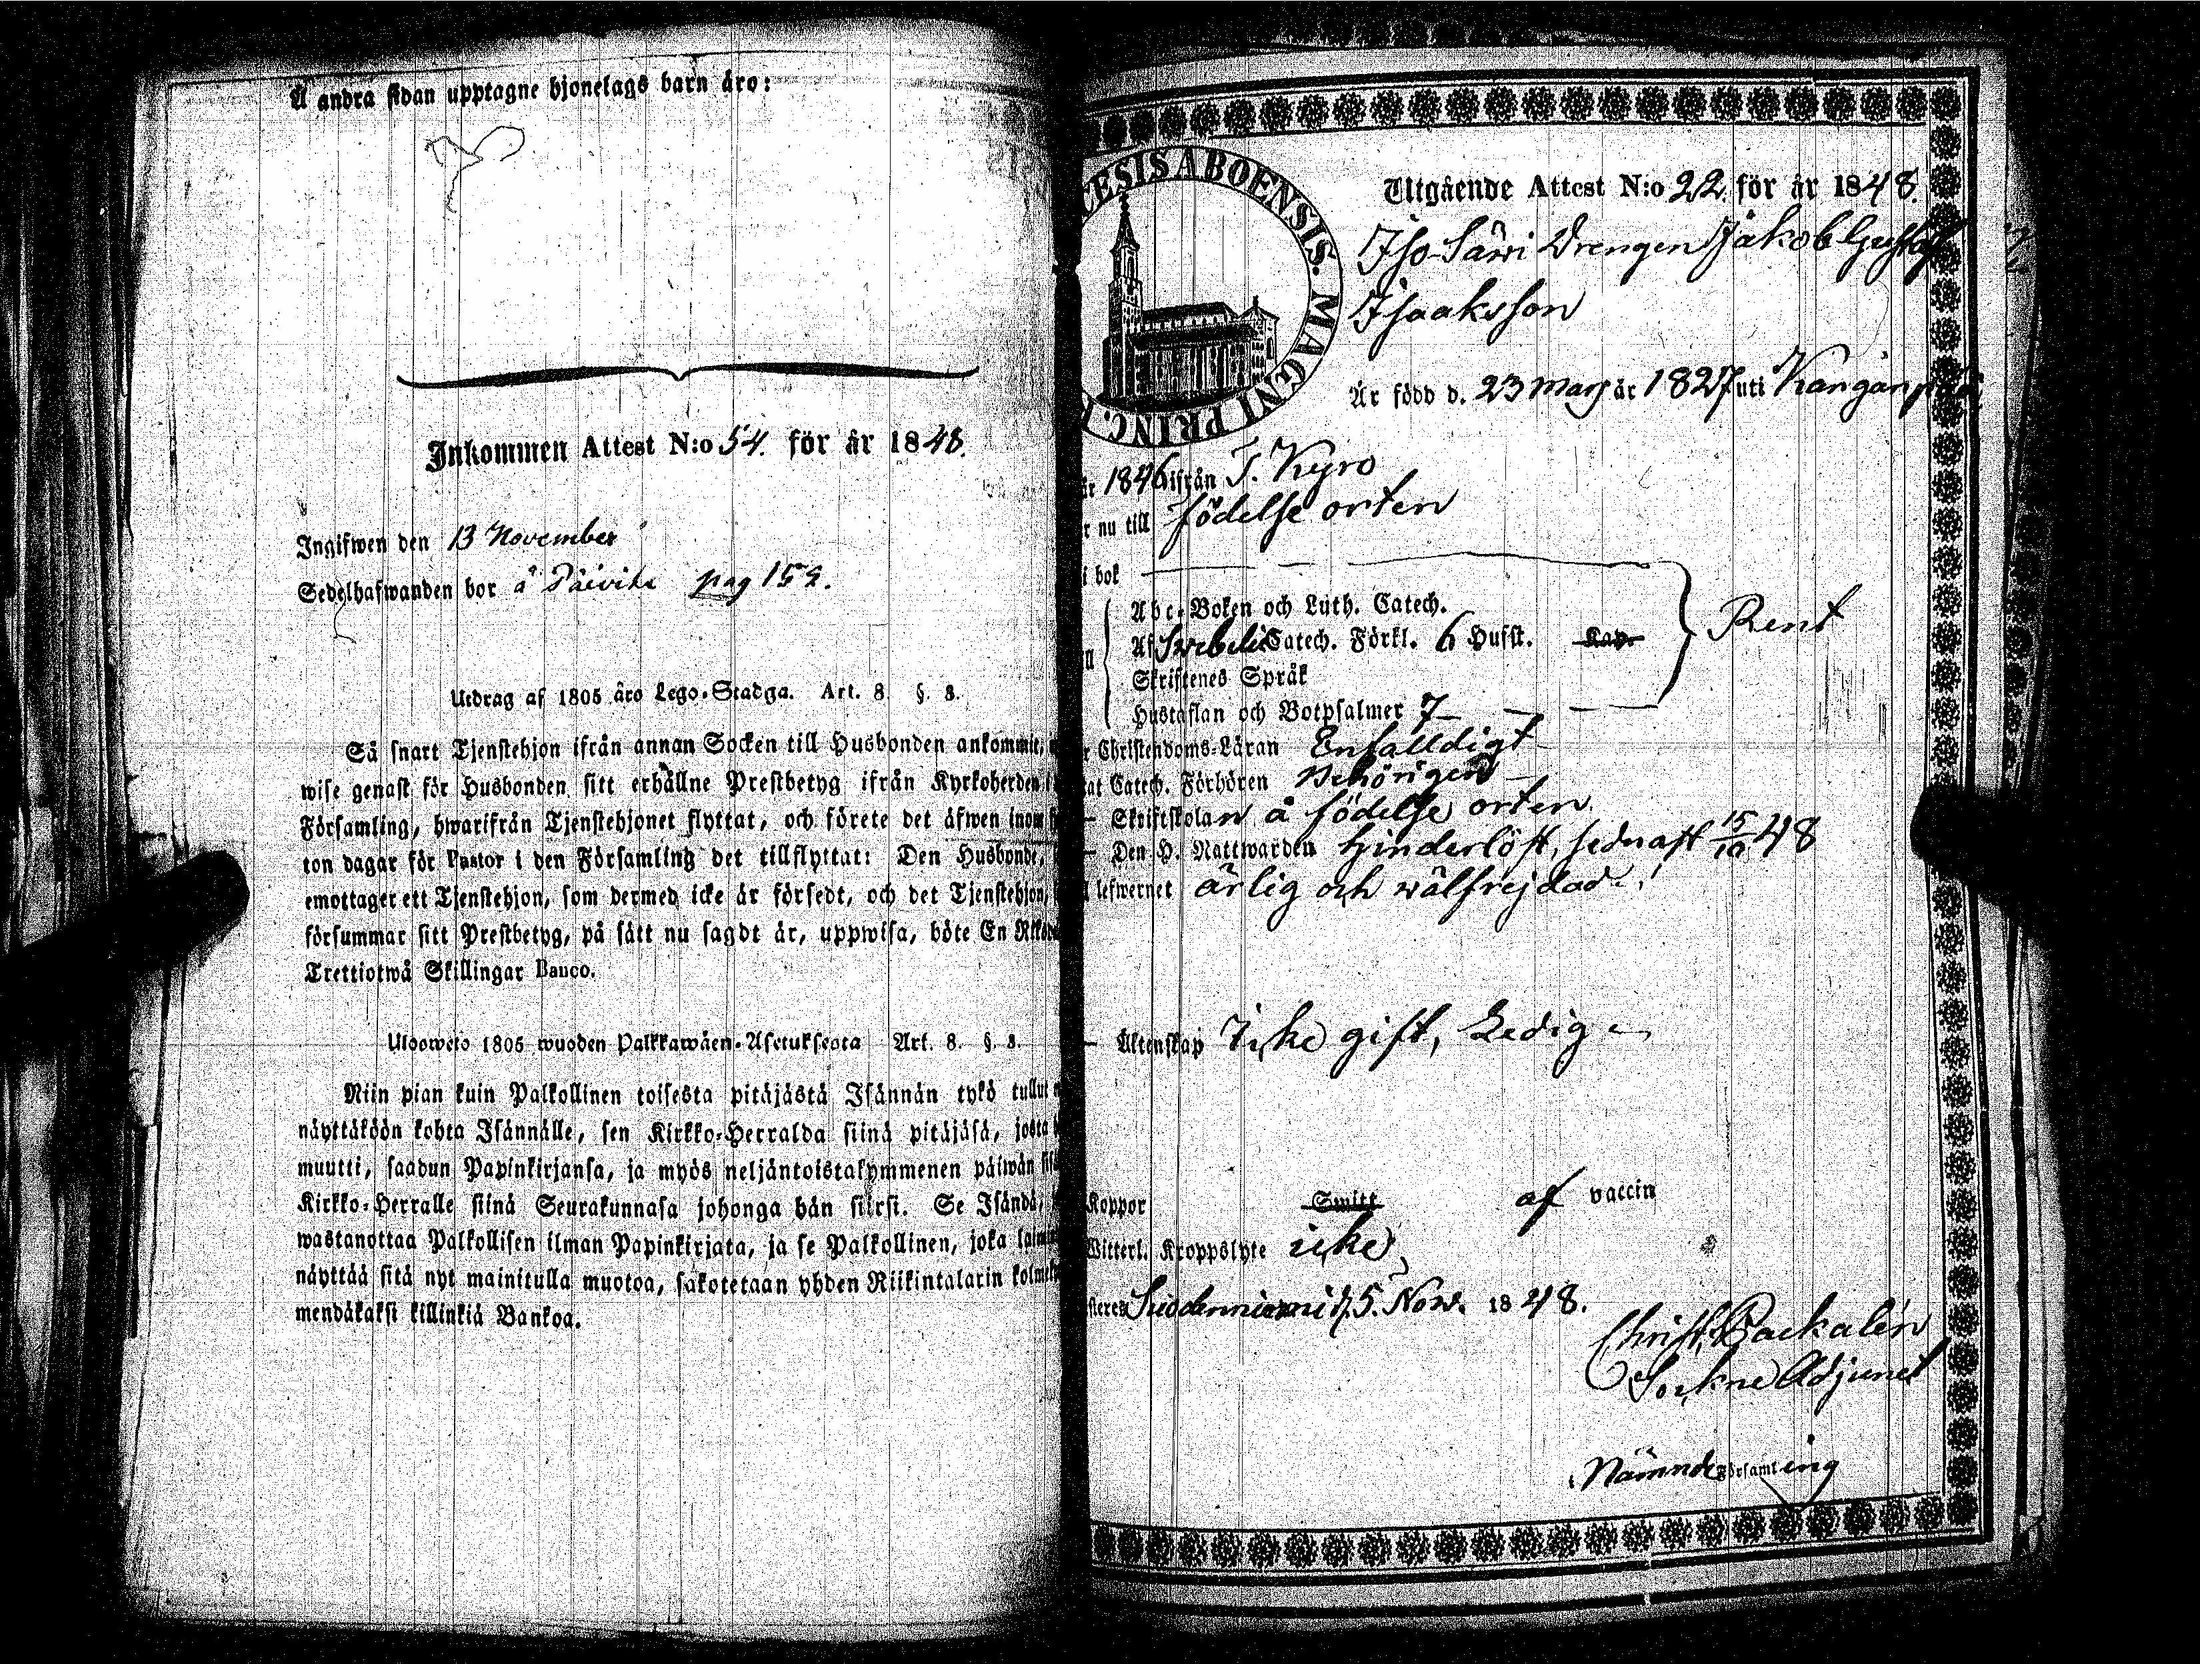 Å andra sidan upptagne hjonelags barn äro:
Inkommen Attest N:o 54. för år 1848.
Ingifwen den 13 November
Sedelhafwanden bor å Päivike pag 152.
Utdrag af 1805 åro Lego-Stadga. Art. 8. §. 3.
Så snart Tjenstehjon ifrån annan Socken till Husbonden ankommit,
wise genast för Husbonden sitt erhållne Prestbetyg ifrån Kyrkoherden
Församling, hwarifrån Tjenstehjonet flyttat, och förete det äfwen inom
ton dagar för Pastor i den Församling det tillflyttat: Den Husbonde,
emottager ett Tjenstehjon, som dermed icke är försedt, och det Tjenstehjon,
försummar sitt Prestbetyg, på sätt nu sagdt är, uppwisa, böte En
Trettiotwå Skillingar Banco.
Ulosweto 1805 wuoden Palkkawäen-Asetuksesta Art. 8. §. 3.
Niin pian kuin Palkollinen toisesta pitäjästä Isännän tykö tullut
näyttäköön kohta Isännälle, sen Kirkko-Herralda siinä pitäjäsä, josta
muutti, saadun Papinkirjansa, ja myös neljäntoistakymmenen päiwän
Kirkko-Herralle siinä Seurakunnasa johonga hän siirsi. Se Isändä,
wastanottaa Palkollisen ilman Papinkirjata, ja se Palkollinen, joka
näyttää sitä nyt mainitulla muotoa, sakotetaan yhden Riikintalarin
mendäkaksi killinkiä Bankoa.
CESIS ABOENSIS. MAGNI PRINC.
Utgående Attest N:o 22. för år 1848.
Iso-Särvi Drengen Jakob Gustaf
Isaaksson
Är född d. 23 Mars år 1827 uti Kanganpää
år 1846 ifrån T. Kyro
nu till födelse orten
i bok
Abc-Boken och Luth. Catech.
Af Swebelii Catech. Förkl. 6 Hufst. Kap.
Skriftenes Språk
Hustaflan och Botpsalmer 7
Rent
Christendoms-Läran Enfalldigt
Catech. Förhören Behörigen
Skriftskolan å födelse orten
Den H. Nattwarden hinderlöst, sednast 15/10 48
lefwernet ärlig och wälfrejdad
Äktenskap Icke gift, Ledig
Koppor Smitt af vaccin
Witterl. Kroppslyte icke
Suodenniemi d. 5. Nov. 1848.
Christ. Packalén
Sockne Adjunct
i Nämnde Församling